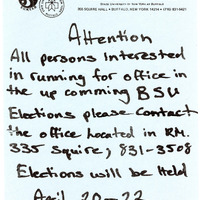 State University of New York at Buffalo
Attention
All persons interested
in running for office in
the up comming BSU
Elections please contact
the office Located in RM.
335 Squire, 831-3508
Elections will be Held
April 20-23